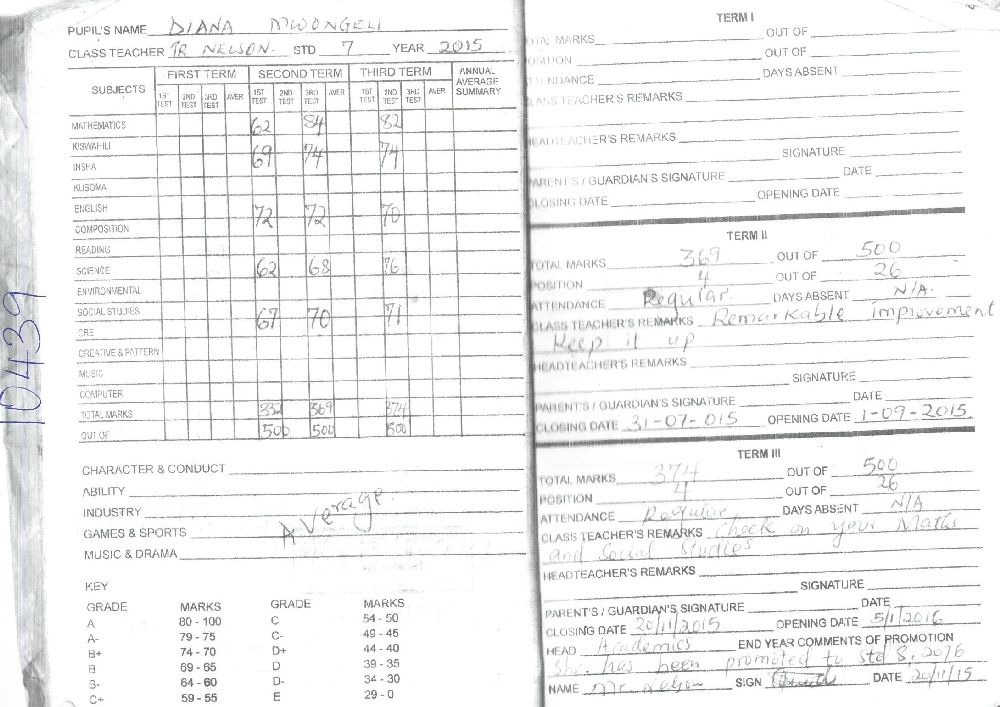 PUPIL'S NAME DIANA MWONGELI
CLASS TEACHER TR NELSON. STD 7 YEAR 2015
SUBJECTS FIRST TERM SECOND TERM THIRD TERM ANNUAL AVERAGE SUMMARY
1ST TEST 2ND TEST 3RD TEST AVER 1ST TEST 2ND TEST 3RD TEST AVER 1ST TEST 2ND TEST 3RD TEST AVER
MATHEMATICS 62 84 82
KISWAHILI
INSHA 69 74 74
KUSOMA
ENGLISH 72 72 70
COMPOSITION
READING
SCIENCE 62 68 76
ENVIRONMENTAL
SOCIAL STUDIES 67 70 71
CRE
CREATIVE & PATTERN
MUSIC
COMPUTER
TOTAL MARKS 332 369 374
OUT OF 500 500 500
CHARACTER & CONDUCT
ABILITY
INDUSTRY
Average.
GAMES & SPORTS
MUSIC & DRAMA
KEY
GRADE MARKS GRADE MARKS
A 80 - 100 C 54 - 50
A- 79 - 75 C- 49 - 45
B+ 74 - 70 D+ 44 - 40
B 69 - 65 D 39 - 35
B- 64 - 60 D- 34 - 30
C+ 59 - 55 E 29 - 0
10439
TERM I
TOTAL MARKS OUT OF
POSITION OUT OF
ATTENDANCE DAYS ABSENT
CLASS TEACHER'S REMARKS
HEADTEACHER'S REMARKS
SIGNATURE
PARENT'S / GUARDIAN'S SIGNATURE DATE
CLOSING DATE OPENING DATE
TERM II
TOTAL MARKS 369 OUT OF 500
POSITION 4 OUT OF 26
ATTENDANCE Regular. DAYS ABSENT N/A.
CLASS TEACHER'S REMARKS Remarkable improvement
Keep it up
HEADTEACHER'S REMARKS
SIGNATURE
PARENT'S / GUARDIAN'S SIGNATURE DATE
CLOSING DATE 31-07-015 OPENING DATE 1-09-2015
TERM III
TOTAL MARKS 374 OUT OF 500
POSITION 4 OUT OF 26
ATTENDANCE Regular. DAYS ABSENT N/A
CLASS TEACHER'S REMARKS Check on your Maths
and Social Studies
HEADTEACHER'S REMARKS
SIGNATURE
PARENT'S / GUARDIAN'S SIGNATURE DATE
CLOSING DATE 20/11/2015 OPENING DATE 5/1/2016
HEAD Academics END YEAR COMMENTS OF PROMOTION
She has been promoted to Std 8, 2016
NAME Mr. Nelson SIGN DATE 20/11/15